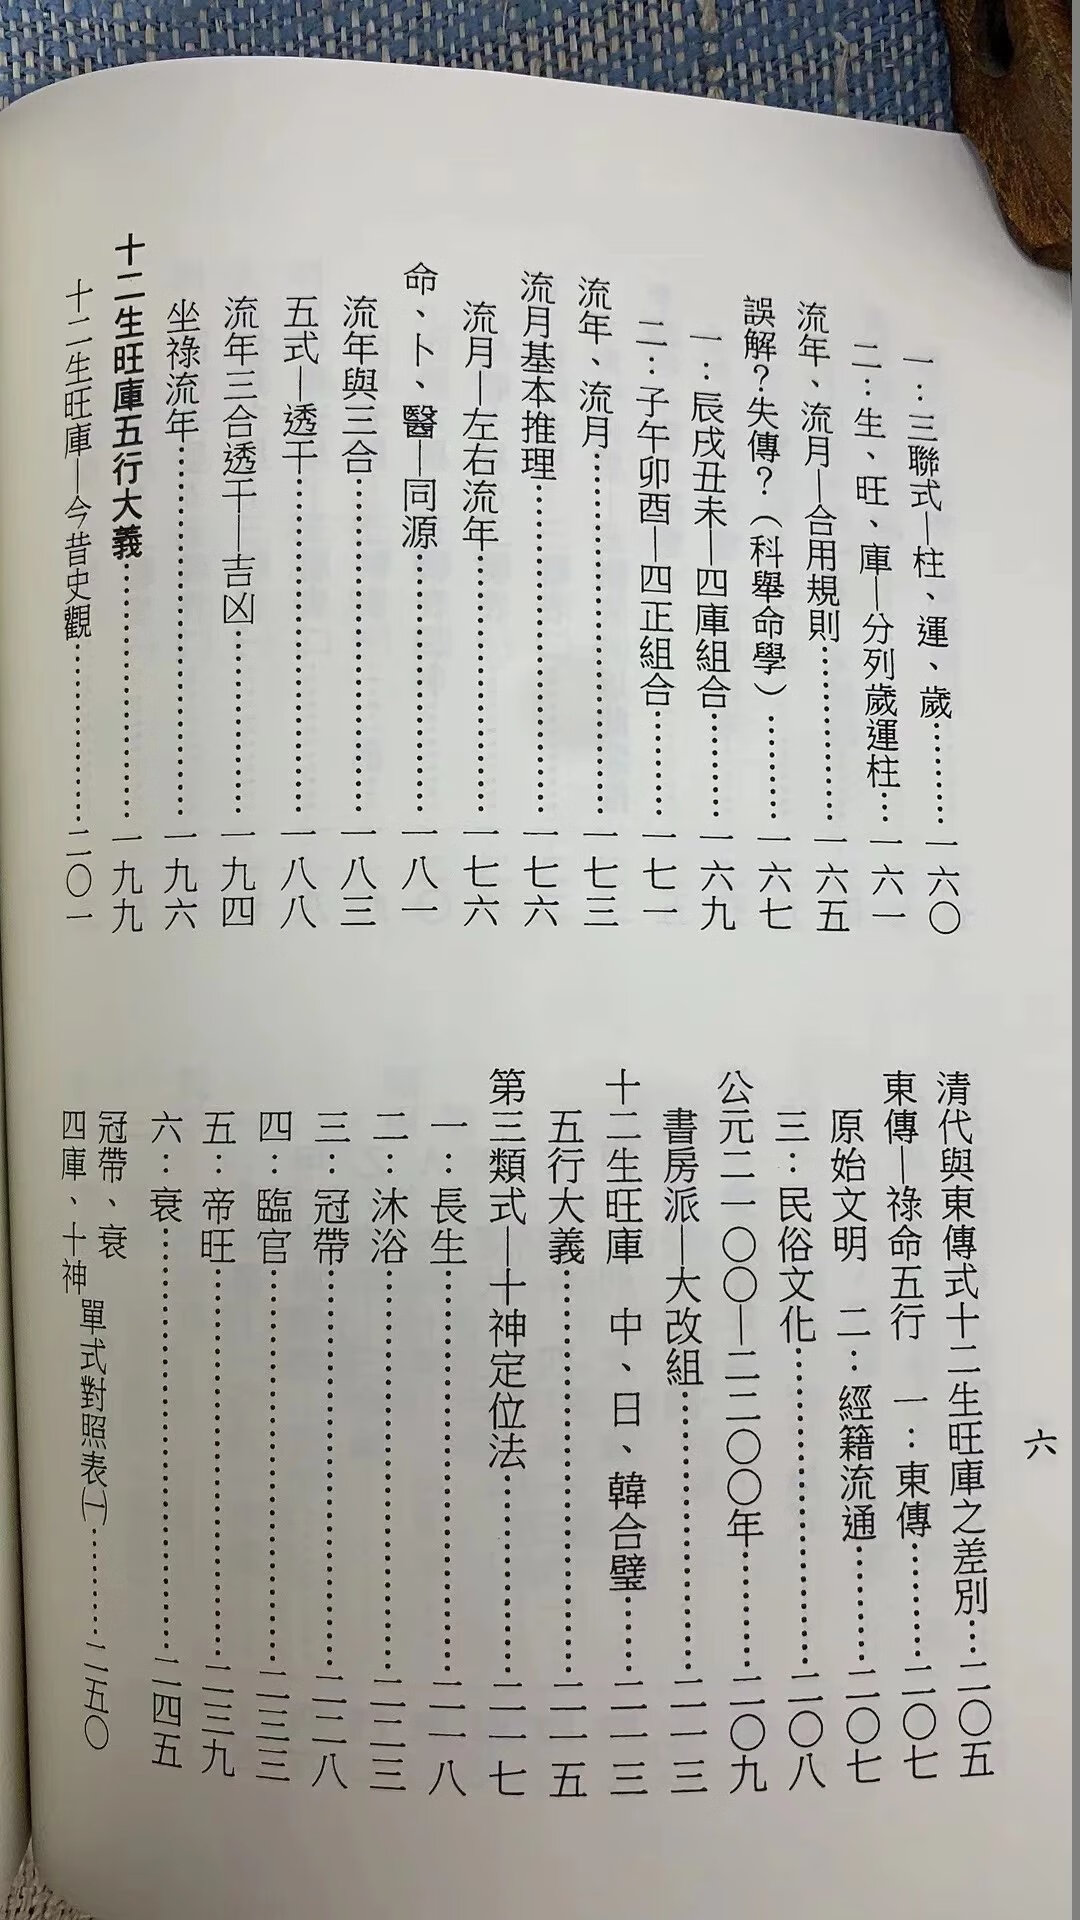 一：三聯式—柱、運、歲…………一六〇
二：生、旺、庫—分列歲運柱…一六一
流年、流月—合用規則…………一六五
誤解？失傳？（科舉命學）…………一六七
一：辰戌丑未—四庫組合…………一六九
二：子午卯酉—四正組合…………一七一
流年、流月…………一七三
流月基本推理…………一七六
流月—左右流年…………一七六
命、卜、醫—同源…………一八一
流年與三合…………一八三
五式—透干…………一八八
流年三合透干—吉凶…………一九四
坐祿流年…………一九六
十二生旺庫五行大義…………一九九
十二生旺庫—今昔史觀…………二〇一
六
清代與東傳式十二生旺庫之差別…二〇五
東傳—祿命五行　一：東傳…………二〇七
原始文明　二：經籍流通…………二〇七
三：民俗文化…………二〇八
公元二一〇〇—二二〇〇年…………二〇九
書房派—大改組…………二一三
十二生旺庫　中、日、韓合璧…………二一三
五行大義…………二一五
第三類式—十神定位法…………二一七
一：長生…………二一八
二：沐浴…………二二三
三：冠帶…………二二八
四：臨官…………二三三
五：帝旺…………二三九
六：衰…………二四五
冠帶、衰
四庫、十神
單式對照表㈠…………二五〇